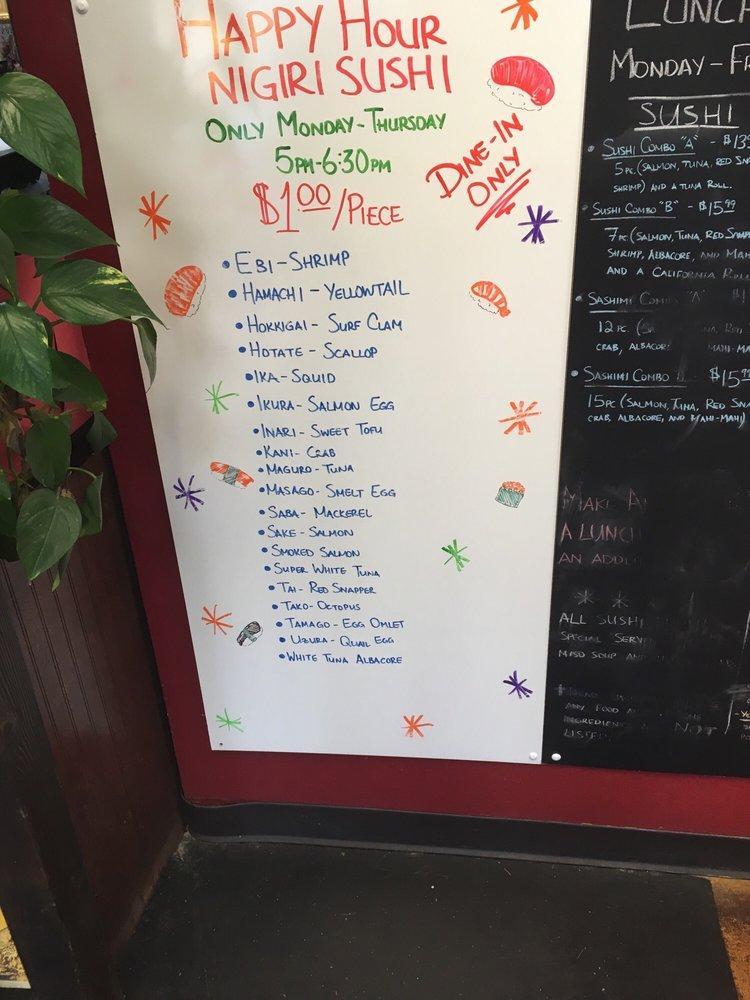 HAPPY HOUR
NIGIRI SUSHI
ONLY MONDAY-THURSDAY
5PM-6:30PM
$1.00/PIECE
DINE-IN
ONLY
• EBI - SHRIMP
• HAMACHI - YELLOWTAIL
• HOKKIGAI - SURF CLAM
• HOTATE - SCALLOP
• IKA - SQUID
• IKURA - SALMON EGG
• INARI - SWEET TOFU
• KANI - CRAB
• MAGURO - TUNA
• MASAGO - SMELT EGG
• SABA - MACKEREL
• SAKE - SALMON
• SMOKED SALMON
• SUPER WHITE TUNA
• TAI - RED SNAPPER
• TAKO - OCTOPUS
• TAMAGO - EGG OMLET
• UZURA - QUAIL EGG
• WHITE TUNA ALBACORE
LUNCH
MONDAY - FR
SUSHI
• SUSHI COMBO "A" - $13
5 PC. (SALMON, TUNA, RED SNA
SHRIMP) AND A TUNA ROLL.
• SUSHI COMBO "B" - $15.99
7 PC. (SALMON, TUNA, RED SNAP
SHRIMP, ALBACORE, AND MAH
AND A CALIFORNIA ROLL
• SASHIMI COM "A"
12 PC. RED
CRAB, ALBACOR MAHI-MA
• SASHIMI COMBO $15.99
15 PC (SALMON, TUNA, RED SNA
CRAB, ALBACORE, AND MAHI-MAHI)
MAKE A
A LUNCH
AN ADD
ALL SUSHI
SPECIAL SERV
MISO SOUP AN
ANY FOOD
INGREDIEN NOT
LISTE